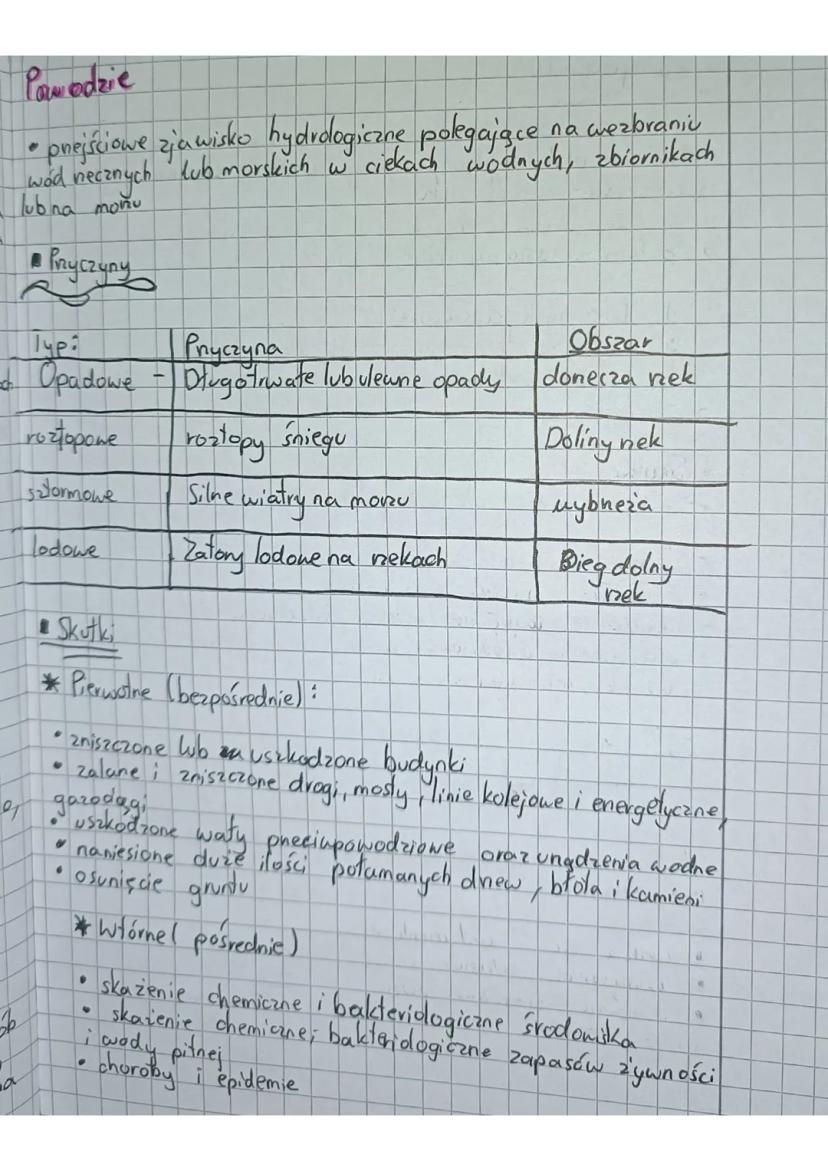 Powodzie
• przejściowe zjawisko hydrologiczne polegające na wezbraniu
wód rzecznych lub morskich w ciekach wodnych, zbiornikach
lub na morzu
▪ Przyczyny
Typ: Przyczyna Obszar
Opadowe - Długotrwałe lub ulewne opady dorzecza rzek
roztopowe roztopy śniegu Doliny rzek
sztormowe Silne wiatry na morzu wybrzeża
lodowe Zatory lodowe na rzekach Bieg dolny
rzek
▪ Skutki
* Pierwotne (bezpośrednie):
• zniszczone lub uszkodzone budynki
• zalane i zniszczone drogi, mosty, linie kolejowe i energetyczne,
gazociągi
• uszkodzone wały przeciwpowodziowe oraz urządzenia wodne
• naniesione duże ilości połamanych drzew, błota i kamieni
• osunięcie gruntu
* Wtórne (pośrednie)
• skażenie chemiczne i bakteriologiczne środowiska
• skażenie chemiczne i bakteriologiczne zapasów żywności
i wody pitnej
• choroby i epidemie